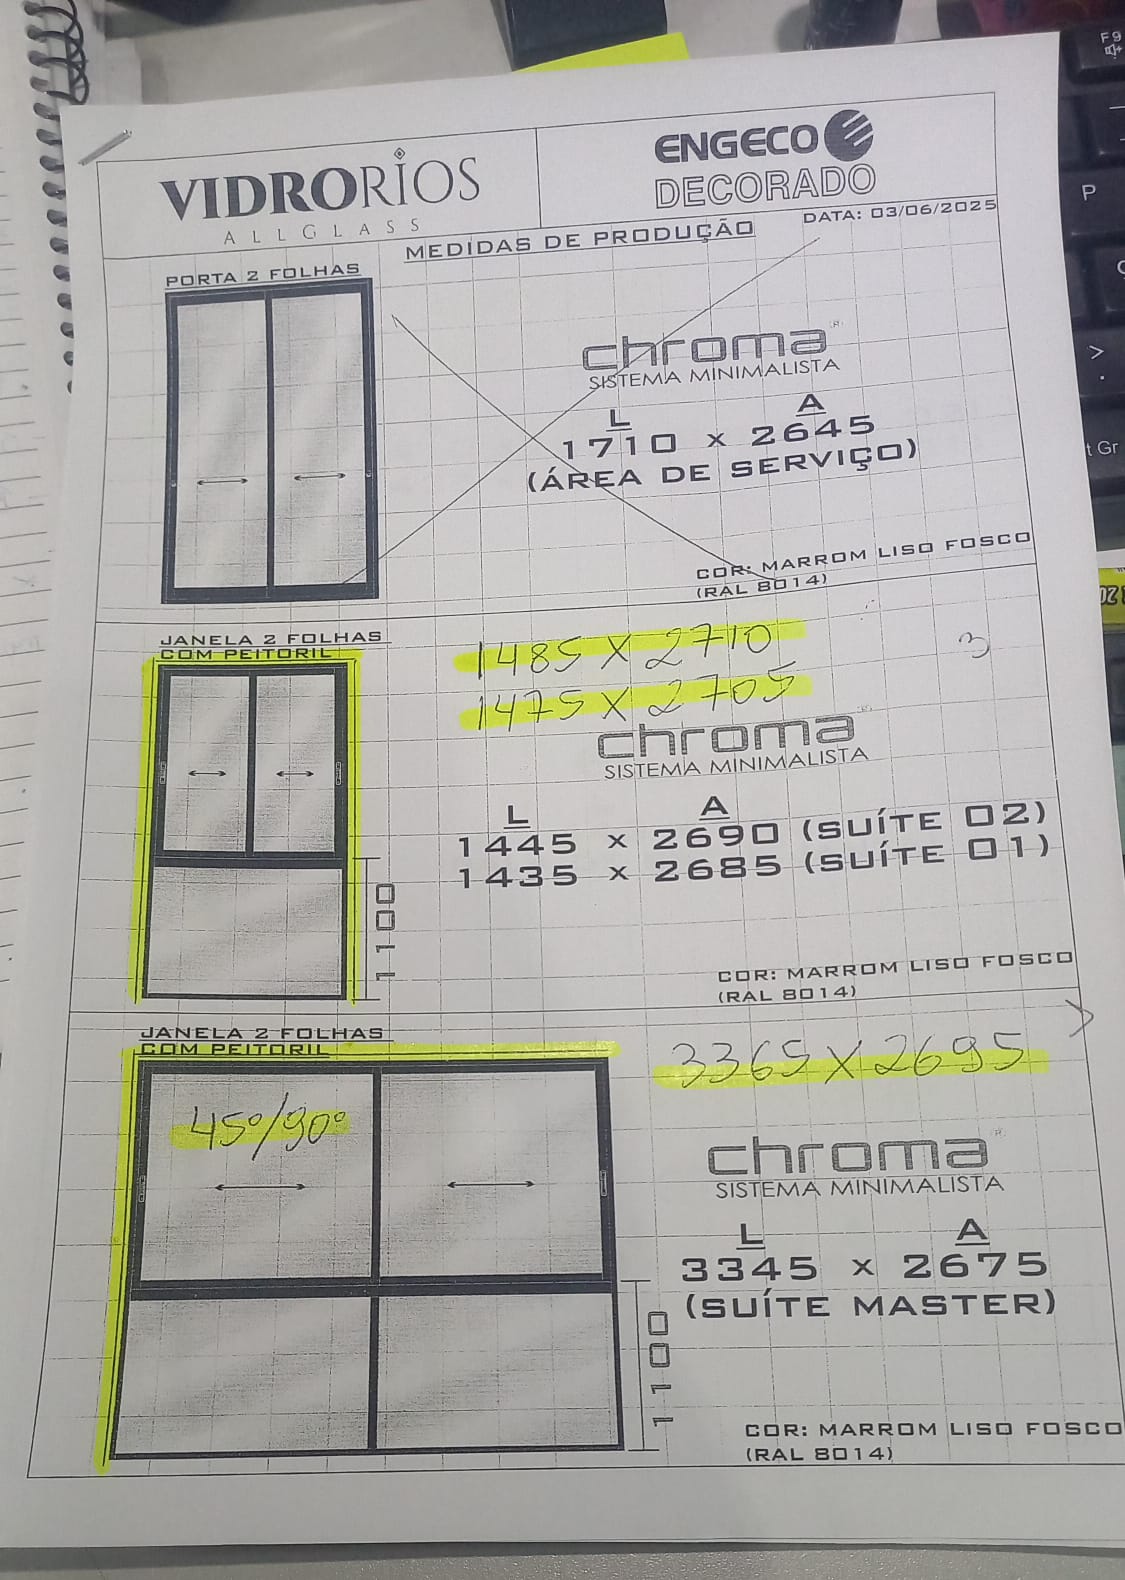 VIDRORIOS
ALLGLASS
ENGECO
DECORADO
MEDIDAS DE PRODUÇÃO
DATA: 03/06/2025
PORTA 2 FOLHAS
chroma®
SISTEMA MINIMALISTA
L A
1710 x 2645
(ÁREA DE SERVIÇO)
COR: MARROM LISO FOSCO
(RAL 8014)
JANELA 2 FOLHAS
COM PEITORIL
1485 X 2710
1475 X 2705
3
chroma®
SISTEMA MINIMALISTA
L A
1445 x 2690 (SUÍTE 02)
1435 x 2685 (SUÍTE 01)
1100
COR: MARROM LISO FOSCO
(RAL 8014)
JANELA 2 FOLHAS
COM PEITORIL
3365 X 2695
45°/90°
chroma®
SISTEMA MINIMALISTA
L A
3345 x 2675
(SUÍTE MASTER)
1100
COR: MARROM LISO FOSCO
(RAL 8014)
F9
P
>
.
t Gr